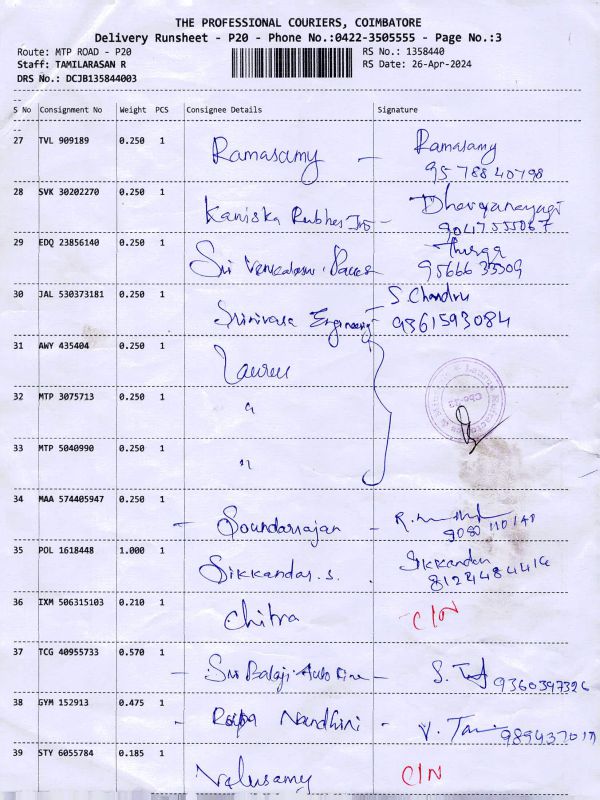 THE PROFESSIONAL COURIERS, COIMBATORE
Delivery Runsheet - P20 - Phone No.:0422-3505555 - Page No.:3
Route: MTP ROAD - P20 RS No.: 1358440
Staff: TAMILARASAN R RS Date: 26-Apr-2024
DRS No.: DCJB135844003
S No Consignment No Weight PCS Consignee Details Signature
27 TVL 909189 0.250 1 Ramasamy - Ramasamy
95788 40798
28 SVK 30202270 0.250 1 Kaniska -
9047555067
29 EDQ 23856140 0.250 1 Sri
30 JAL 530373181 0.250 1 Srinivasa Engineering - S. Chandru
9361593084
31 AWY 435404 0.250 1
32 MTP 3075713 0.250 1 "
33 MTP 5040990 0.250 1 "
34 MAA 574405947 0.250 1 - Soundarrajan - R.
35 POL 1618448 1.000 1 Sikkandar.s. Sikkandar
36 IXM 506315103 0.210 1 Chitra C/N
37 TCG 40955733 0.570 1 - Sri Balaji Auto - S.
9360397326
38 GYM 152913 0.475 1 - Nandhini - V.
39 STY 6055784 0.185 1 Velusamy C/N